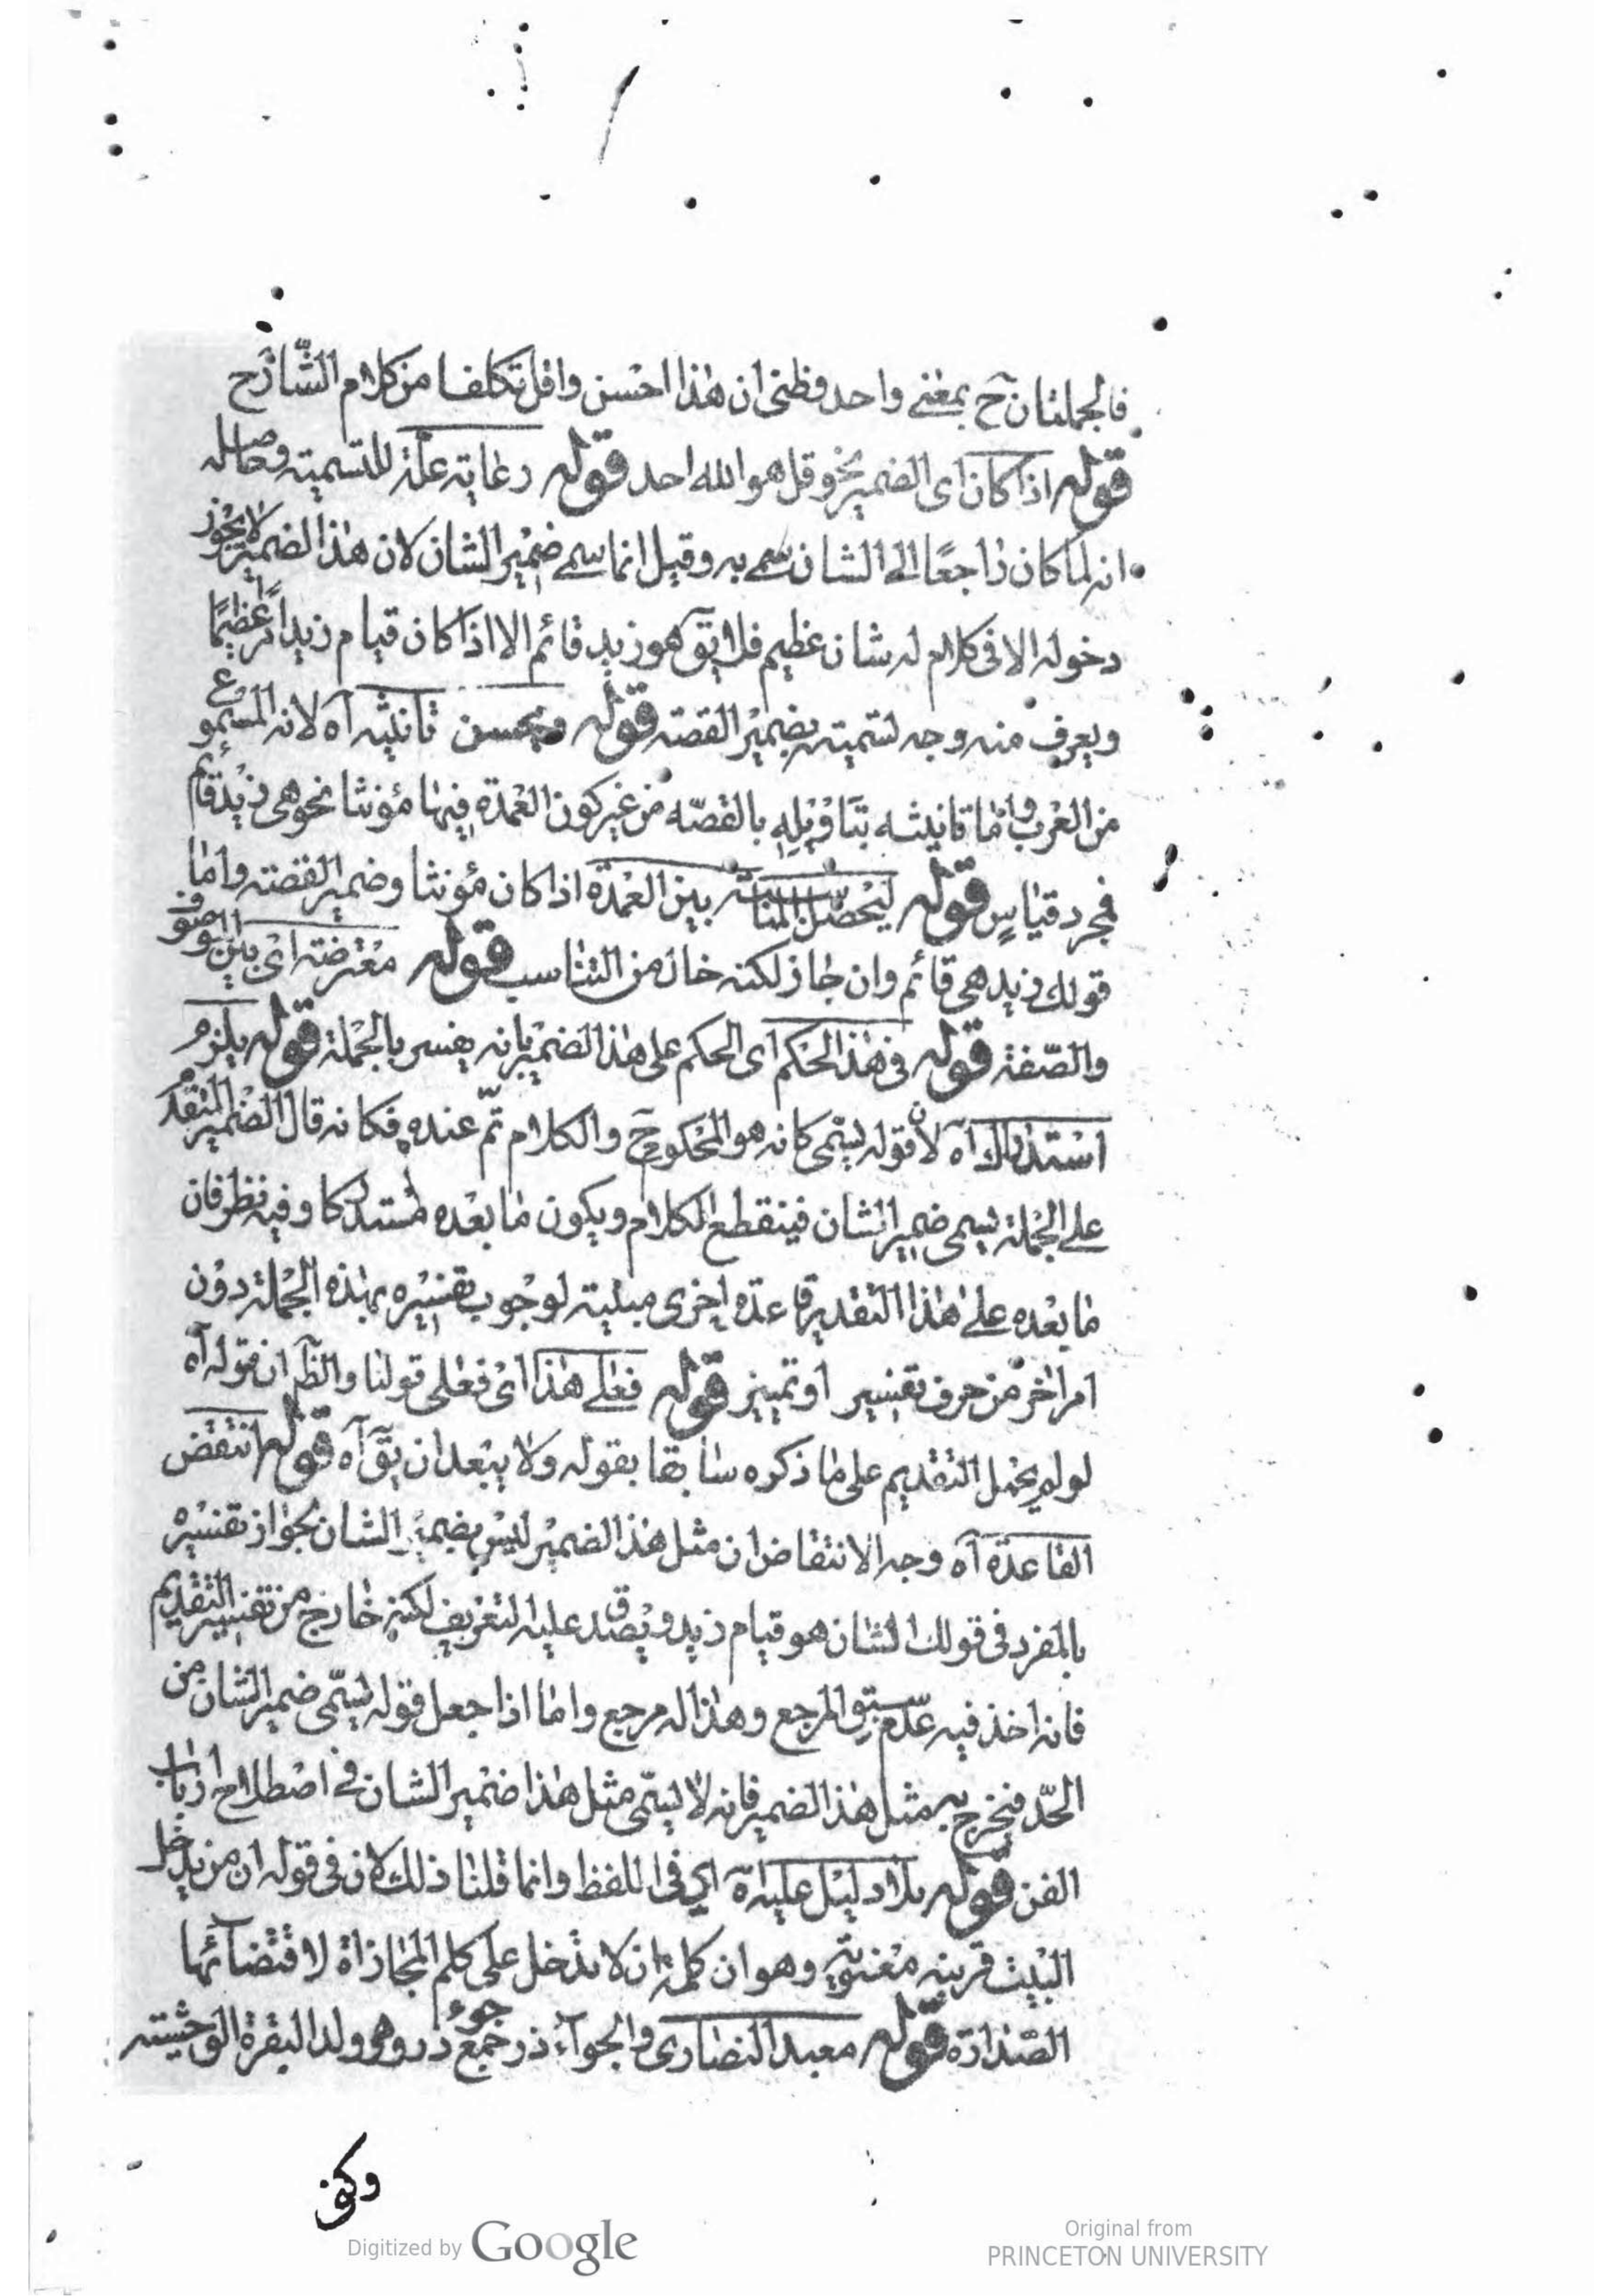 فالجملتان ح بمعنى واحد فظنى ان هذا احسن واقل تكلفا من كلام الشارح
قوله اذا كان اى الضمير نحو قل هو الله احد قوله رعاية علة للتسمية وحاصله
انه لما كان راجعًا الى الشان سمى به وقيل انما سمى ضمير الشان لان هذا الضمير لا يجوز
دخوله الا فى كلام له شان عظيم فلا يق هو زيد قائم الا اذا كان قيام زيد امرًا عظيمًا
ويعرف منه وجه تسميته بضمير القصة قوله ويحسن تانيثه آه لانه المسموع
من العرب واما تانيثه بتاويله بالقصّه من غير كون العمدة فيها مؤنثا نحو هى زيد قائم
فمجرد قياس قوله ليحصل المناسبة بين العمدة اذا كان مؤنثا وضمير القصة واما
قولك زيد هى قائم وان جاز لكنه خال من التناسب قوله معترضة اى بين الموصوف
والصّفة قوله فى هذا الحكم اى الحكم على هذا الضمير بانه يفسر بالجملة قوله يلزم
استدراك آه لان قوله يسمى كانه هو المحكوم ح والكلام تمّ عنده فكانه قال الضمير المتقدم
على الجملة يسمى ضمير الشان فينقطع الكلام ويكون ما بعده مستدركا وفيه نظر فان
ما بعده على هذا التقدير قاعدة اخرى مبينة لوجوب تفسيره بهذه الجملة دون
امر اخر من حرف تفسير او تمييز قوله فعلى هذا اى فعلى قولنا والظ ان قوله آه
لو لم يحمل التقديم على ما ذكره سابقا بقوله ولا يبعد ان يق آه قوله انتقض
القاعدة آه وجه الانتقاض ان مثل هذا الضمير ليس بضمير الشان لجواز تفسيره
بالمفرد فى قولك الشان هو قيام زيد ويصدق عليه التعريف لكنه خارج من تفسير التقديم
فانه اخذ فيه عدم سبق المرجع وهذا له مرجع واما اذا جعل قوله يسمّى ضمير الشان من
الحدّ فيخرج به مثل هذا الضمير فانه لا يسمّى مثل هذا ضمير الشان فى اصطلاح ارباب
الفن قوله بلا دليل عليه آه اى فى اللفظ وانما قلنا ذلك لان فى قوله ان من يدخل
البيت قرينه معنوية وهو ان كلمة ان لا تدخل على كلم المجازاة لاقتضائها
الصدارة قوله معبد النصارى والجوآذر جمع جوءذر وهو ولد البقرة الوحشية
Digitized by Google
Original from
PRINCETON UNIVERSITY